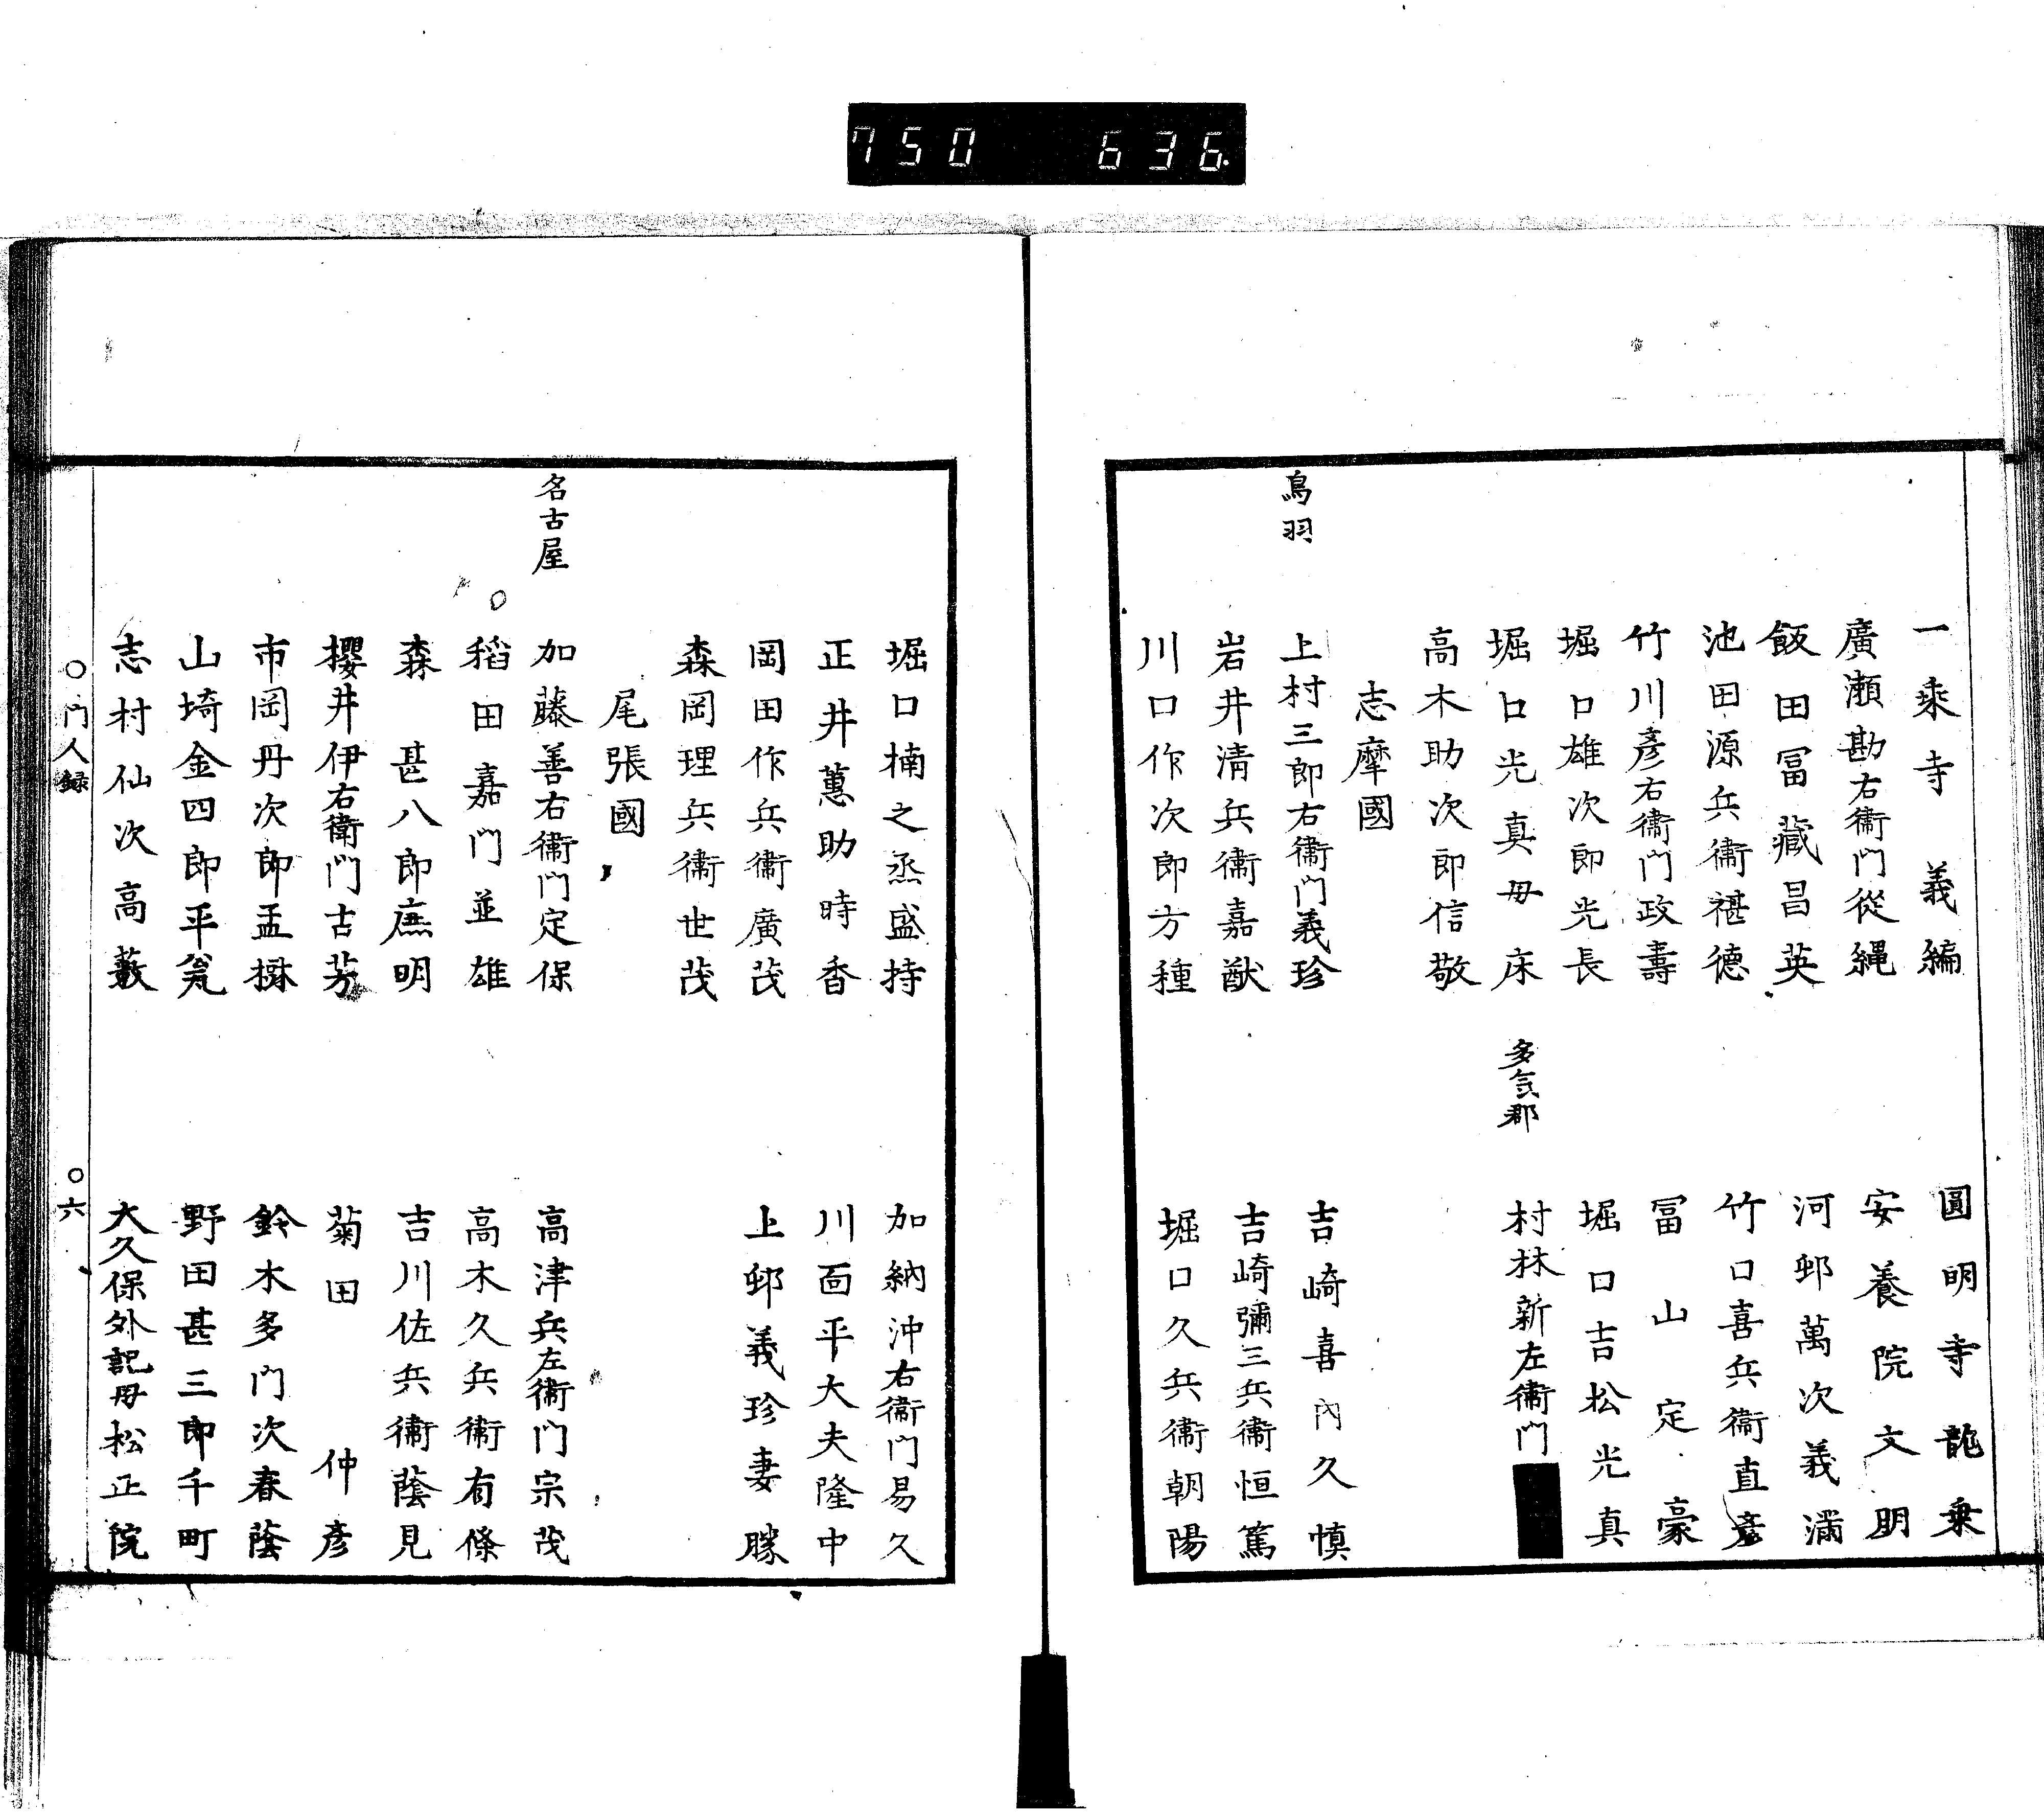 750 636
一乘寺 義編 圓明寺龍乗
廣瀬勘右衞門從縄 安養院文明
飯田冨藏昌英 河邨萬次義滿
池田源兵衞禔德 竹口喜兵衞直彦
竹川彦右衞門政壽 冨山定豪
堀口雄次郎光長 堀口吉松光真
堀口光真母床 多気郡 村林新左衞門
高木助次郎信敬
志摩國
鳥羽 上村三郎右衞門義珍 吉崎喜内久慎
岩井清兵衞嘉猷 吉崎彌三兵衞恒篤
川口作次郎方種 堀口久兵衞朝陽
堀口楠之烝盛持 加納沖右衞門易久
正井蕙助時香 川面平大夫隆中
岡田作兵衞廣茂 上邨義珍妻勝
森岡理兵衞世茂
尾張國
名古屋 加藤善右衞門定保 高津兵左衞門宗茂
稻田嘉門並雄 高木久兵衞有條
森 甚八郎廡明 吉川佐兵衞蔭見
櫻井伊右衞門古芳 菊田 仲彦
市岡丹次郎孟樹 鈴木多門次春蔭
山埼金四郎平 野田甚三郎千町
志村仙次高藪 大久保外記母松正院
○門人録 ○六